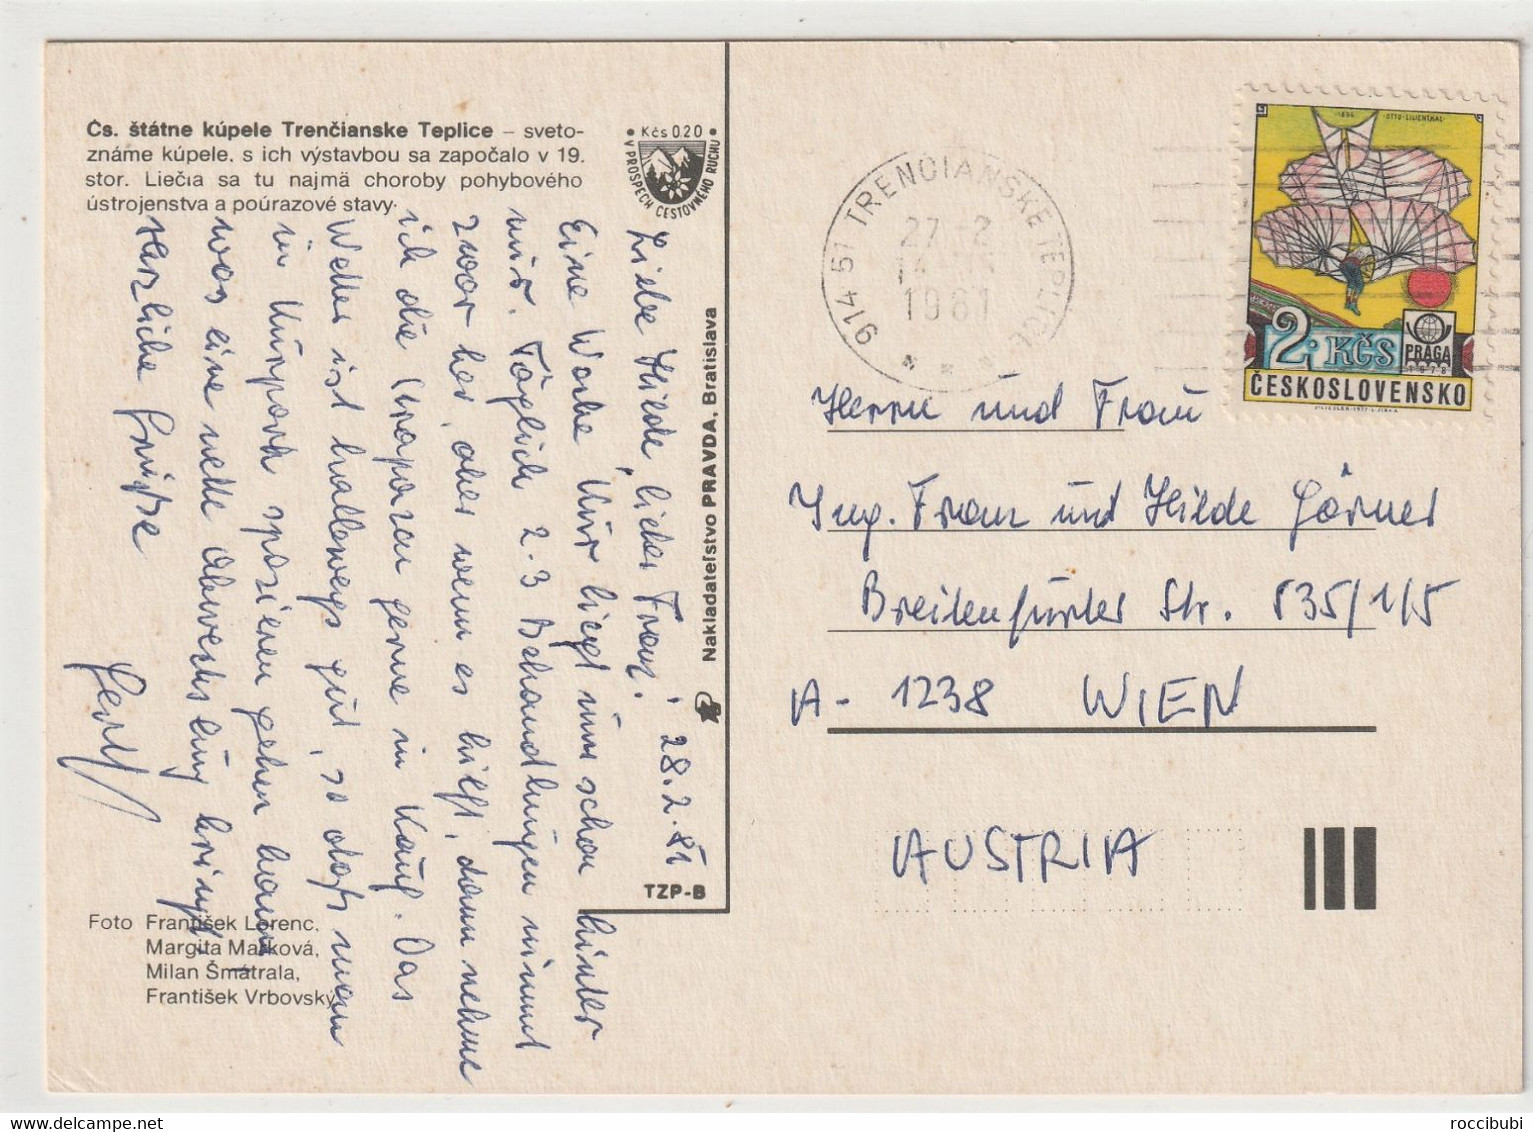 Čs. štátne kúpele Trenčianske Teplice – sveto-
známe kúpele, s ich výstavbou sa započalo v 19.
stor. Liečia sa tu najmä choroby pohybového
ústrojenstva a poúrazové stavy.
Kčs 0.20
V PROSPECH CESTOVNÉHO RUCHU
28.2.81
Liebe Hilde, lieber Franz!
Eine Woche Kur liegt nun schon hinter
mir. Täglich 2-3 Behandlungen nimmt
zwar her, aber wenn es hilft, dann nehme
ich die Strapazen gerne in Kauf. Das
Wetter ist halbwegs gut, so daß man
im Kurpark spazieren gehen kann,
was eine nette Abwechslung bringt.
Herzliche Grüße
Foto František Lorenc,
Margita Mašková,
Milan Šmátrala,
František Vrbovský
Nakladateľstvo PRAVDA, Bratislava
TZP-B
914 51 TRENČIANSKE TEPLICE
27.-2
1981
1894 OTTO LILIENTHAL
2 KČS
PRAGA
1978
ČESKOSLOVENSKO
Herrn und Frau
Ing. Franz und Hilde Görner
Breitenfurter Str. 535/1/5
A- 1238 WIEN
AUSTRIA
roccibubi